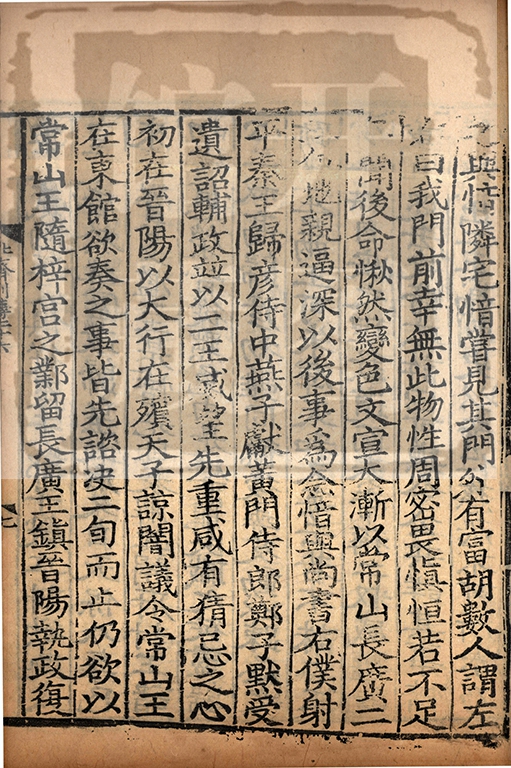 與愔隣宅愔嘗見其門外有富胡數人謂左
曰我門前幸無此物性周密畏慎恒若不足
聞後命愀然變色文宣大漸以常山長廣二
地親逼深以後事爲念愔與尚書右僕射
平秦王歸彥侍中燕子獻黃門侍郎鄭子默受
遺詔輔政並以二王威望先重咸有猜忌之心
初在晉陽以大行在殯天子諒闇議令常山王
在東館欲奏之事皆先諮决二旬而止仍欲以
常山王隨梓宮之鄴留長廣王鎮晉陽執政復